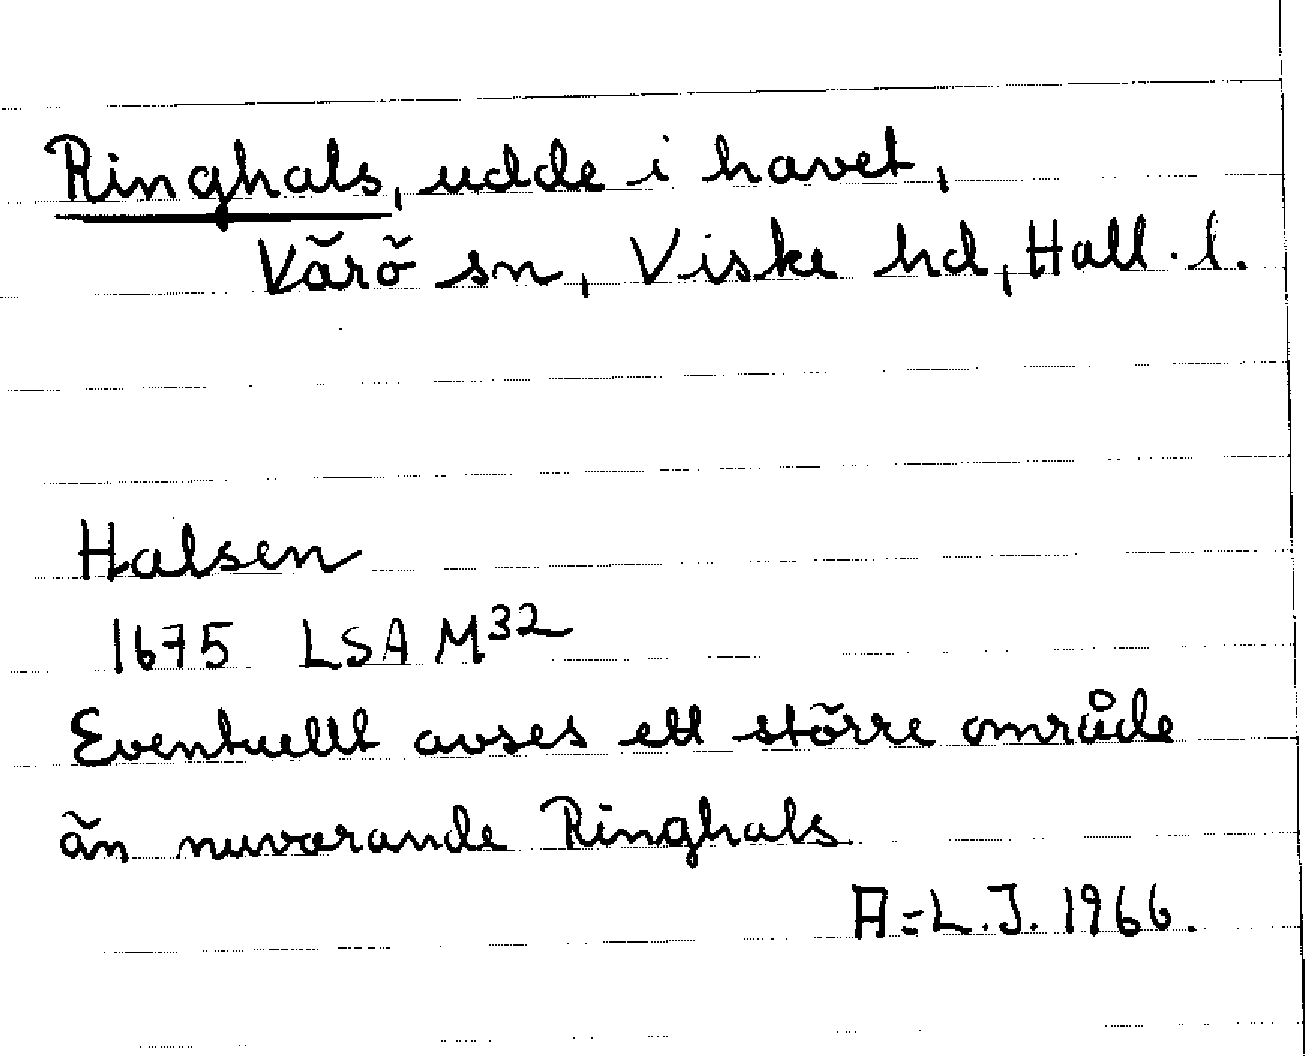 Ringhals, udde i havet,
Värö sn, Viske hd, Hall. l.
Halsen
1675 LSA M32
Eventuellt avses ett större område
än nuvarande Ringhals
A=L.J. 1966.